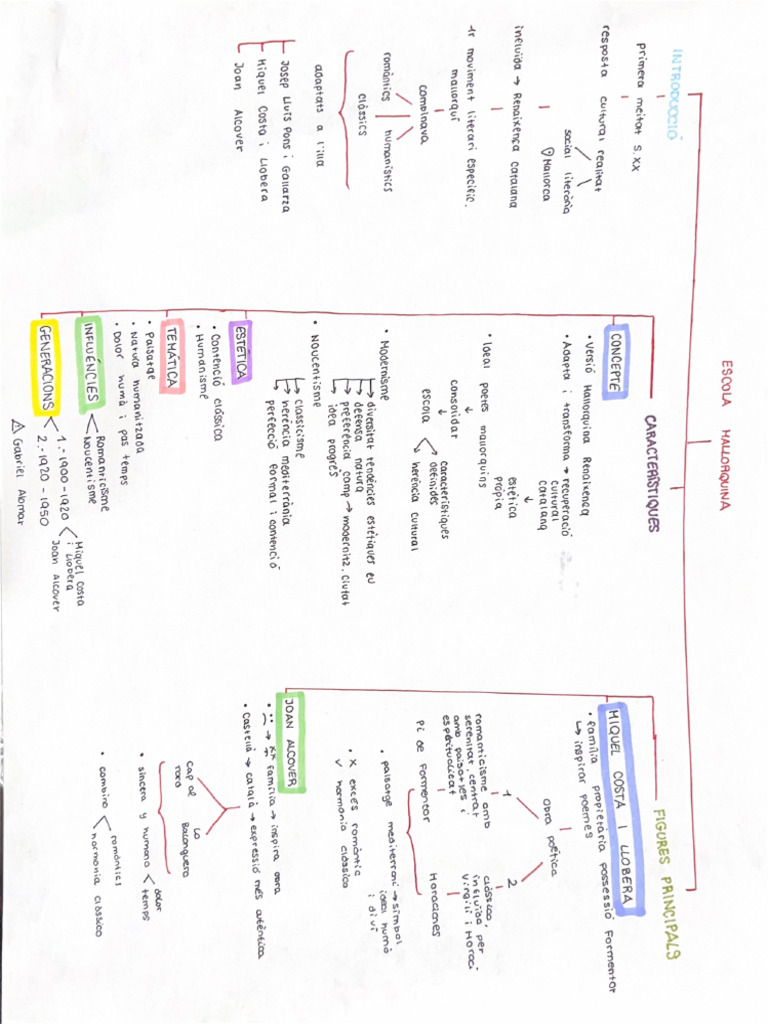 ESCOLA MALLORQUINA
INTRODUCCIÓ
primera meitat S.XX
resposta cultural realitat
social literària
Mallorca
influïda → Renaixença Catalana
1r moviment literari específic.
mallorquí
combinava
romàntics humanístics
clàssics
adaptats a l'illa
Josep Lluís Pons i Gallarza
Miquel Costa i Llobera
Joan Alcover
CARACTERÍSTIQUES
CONCEPTE
• Versió Mallorquina Renaixença
• Adapta i transforma → recuperació
cultural
catalana
• Ideal poetes mallorquins
estètica
pròpia
consolidar
escola
característiques
definides
herència cultural
• Modernisme
diversitat tendències estètiques eu
defensa natura
preferència camp → modernitz. ciutat
idea progrés
• Noucentisme
classicisme
herència mediterrània
perfecció formal i contenció
ESTÈTICA
• Contenció clàssica
• Humanisme
TEMÀTICA
• Paisatge
• Natura humanitzada
• Dolor humà i pas temps
INFLUÈNCIES
Romanticisme
Noucentisme
GENERACIONS
1.- 1900-1920
Miquel Costa
i Llobera
Joan Alcover
2.- 1920-1950
Gabriel Alomar
FIGURES PRINCIPALS
MIQUEL COSTA I LLOBERA
• família propietària possessió Formentor
↳ inspirar poemes
obra poètica
1
romanticisme amb
serenitat, centrat
amb paisatges i
espiritualitat
Pi de Formentor
2
clàssica,
influïda per
Virgili i Horaci
Horacianes
• paisatge mediterrani → símbol
ideal humà
i diví
• X excés romàntic
✓ harmonia clàssica
JOAN ALCOVER
• família → inspira obra
• Castellà → català → expressió més autèntica
Cap al
tard
La
Balanguera
• sincera y humana
dolor
temps
• combina
romàntics
harmonia clàssica